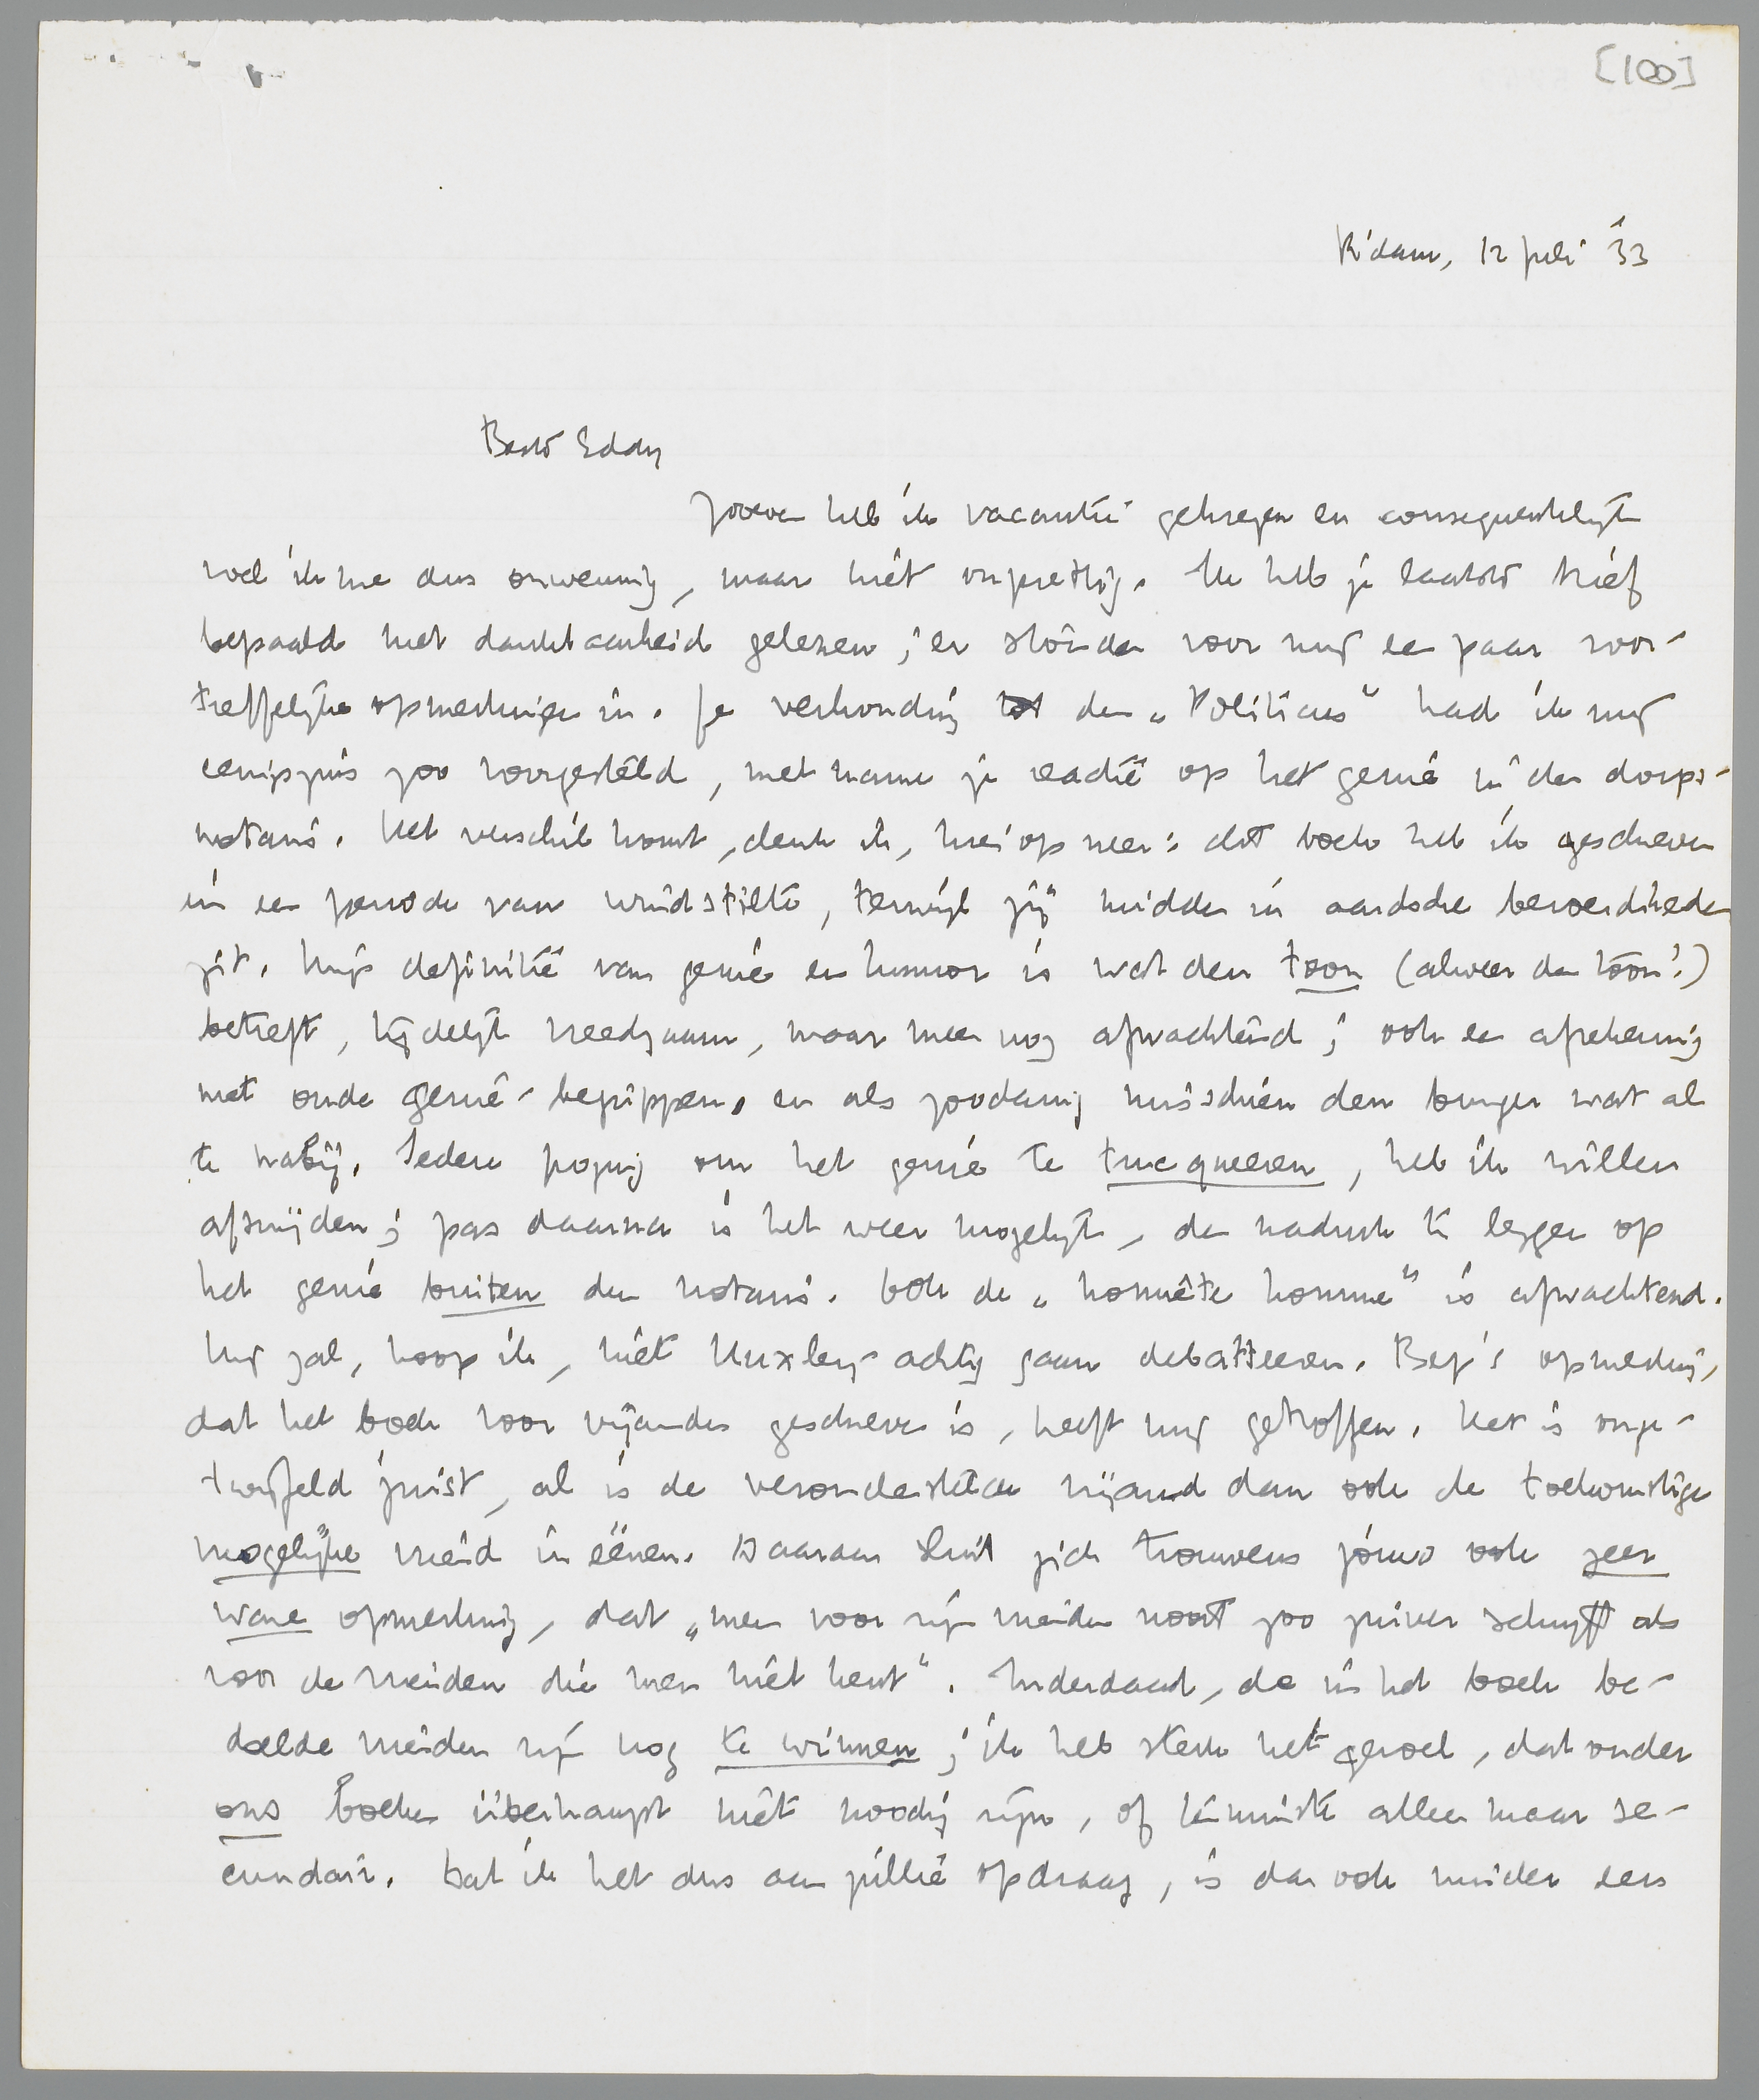 [100]
R'dam, 12 Juli '33
Beste Eddy
Zooeven heb ik vacantie gekregen en consequentelijk
voel ik me dus onwennig, maar niet onprettig. Ik heb je laatste brief
bepaald met dankbaarheid gelezen; er stonden voor mij een paar voor-
treffelijke opmerkingen in. Je verhouding tot den „Politicus” had ik mij
eenigszins zoo voorgesteld, met name je reactie op het genie in den dorps-
notaris. Het verschil komt, denk ik, hierop neer: dit boek heb ik geschreven
in een periode van windstilte, terwijl jij midden in aardsche beroerdheden
zit. Mijn definitie van genie en humor is wat den toon (alweer den toon!)
betreft, tijdelijk vreedzaam, maar meer nog afwachtend; ook een afrekening
met oude genie-begrippen, en als zoodanig misschien den burger wat al
te nabij. Iedere poging om het genie te trucqueeren, heb ik willen
afsnijden; pas daarna is het weer mogelijk, den nadruk te leggen op
het genie buiten den notaris. Ook de „honnête homme” is afwachtend.
Hij zal, hoop ik, niet Huxley-achtig gaan debatteeren. Bep's opmerking,
dat het boek voor vijanden geschreven is, heeft mij getroffen. Het is onge-
twijfeld juist, al is de veronderstelde vijand dan ook de toekomstige
mogelijke vriend in eenen. Daaraan sluit zich trouwens jouw ook zeer
ware opmerking, dat „men voor zijn vrienden nooit zoo zuiver schrijft als
voor de vrienden die men niet kent”. Inderdaad, de in het boek be-
doelde vrienden zijn nog te winnen; ik heb sterk het gevoel, dat onder
ons boeken überhaupt niet noodig zijn, of tenminste alleen maar se-
cundair. Dat ik het dus aan jullie opdraag, is dan ook minder een